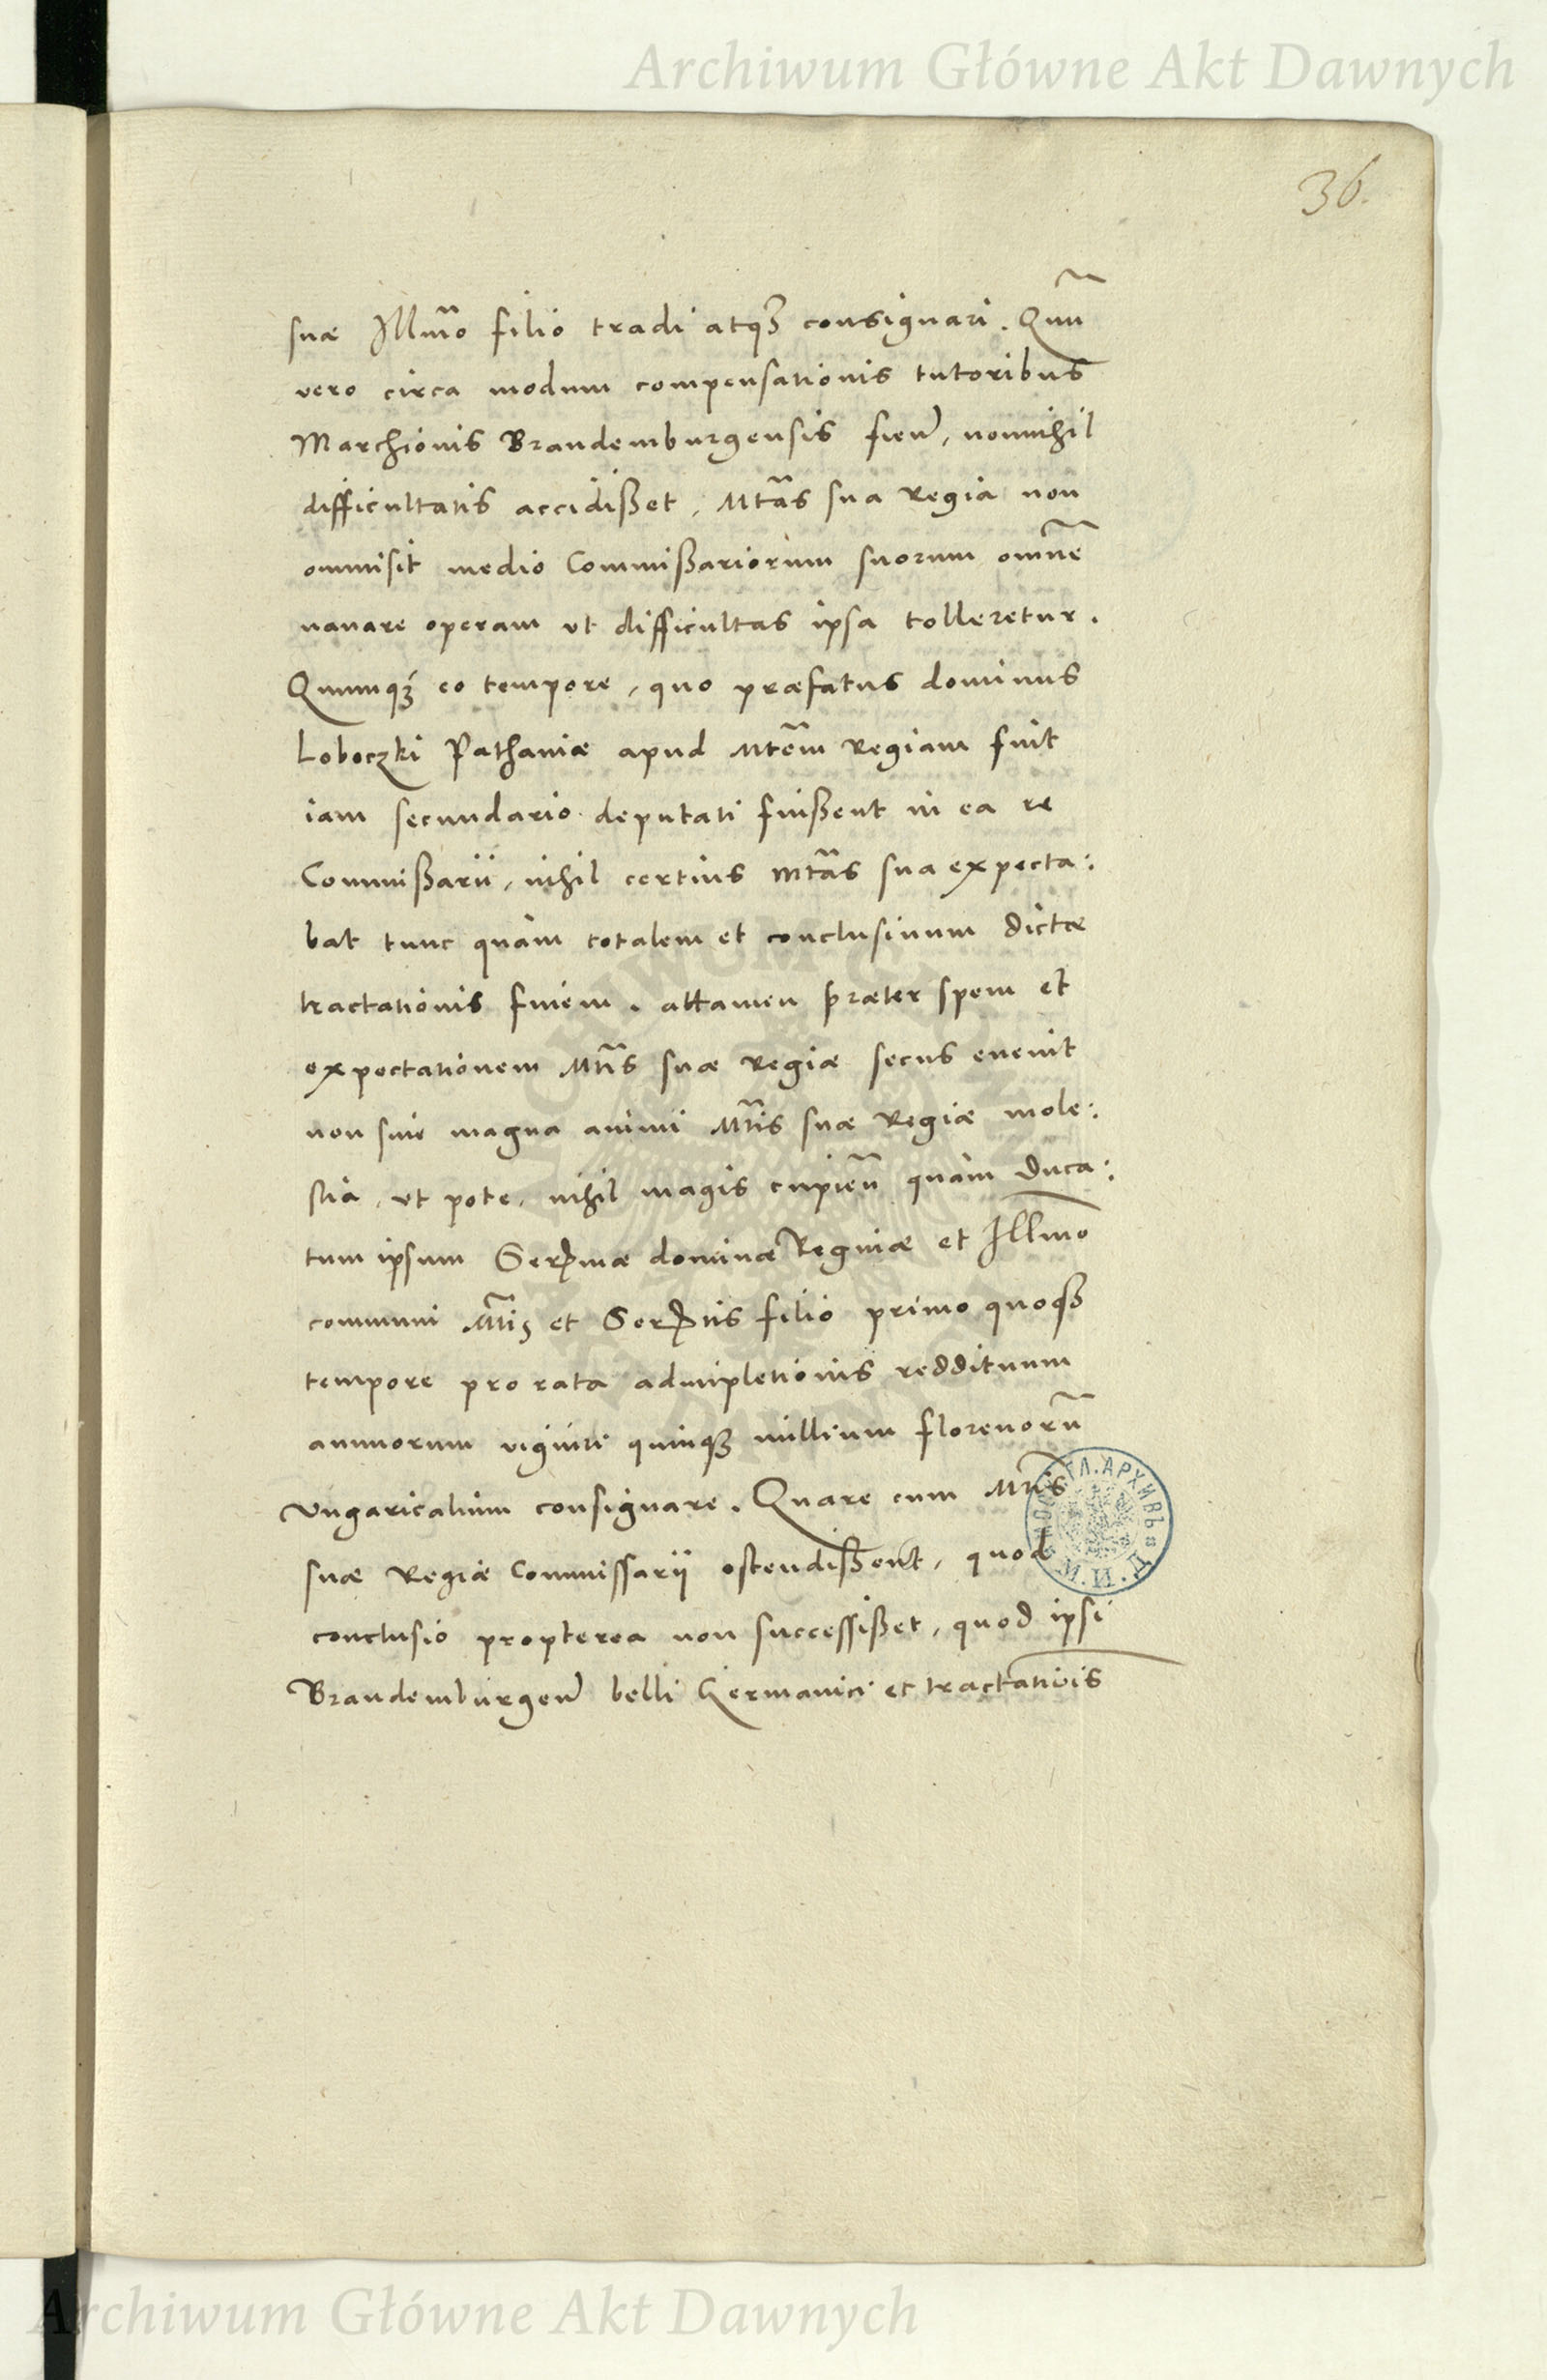 Archiwum Główne Akt Dawnych
36.
suæ Illmo filio tradi atq3 consignari. Quū
vero circa modum compensationis tutoribus
Marchionis Brandemburgensis fien̄, nonnihil
difficultatis accidißet, Mtas sua Regia non
ommisit medio Commißariorum suorum omnē
nauare operam ut difficultas ipsa tolleretur.
Quumq3 eo tempore, quo præfatus dominus
Loboczki Pathaniæ apud Mtem Regiam fuit
iam secundario deputati fuißent in ea re
Commißarii, nihil certius Mtas sua expecta:
bat tunc quam totalem et conclusiuum dictæ
tractationis finem. attamen præter spem et
expectationem Mtis suæ Regiæ secus euenit
non sine magna animi Mtis suæ Regiæ mole:
stia, ut pote, nihil magis cupien̄ quam Duca:
tum ipsum Sermæ dominæ Reginæ et Illmo
communi Mtis et Sertis filio primo quoq3
tempore pro rata adimpletionis reddituum
annuorum viginti quinq3 millium florenorū
Vngaricalium consignare. Quare cum Mtis
suæ Regiæ Commissarij ostendißent, quod
conclusio propterea non successißet, quod ipsi
Brandemburgen̄ belli Germanici et tractationis
Archiwum Główne Akt Dawnych